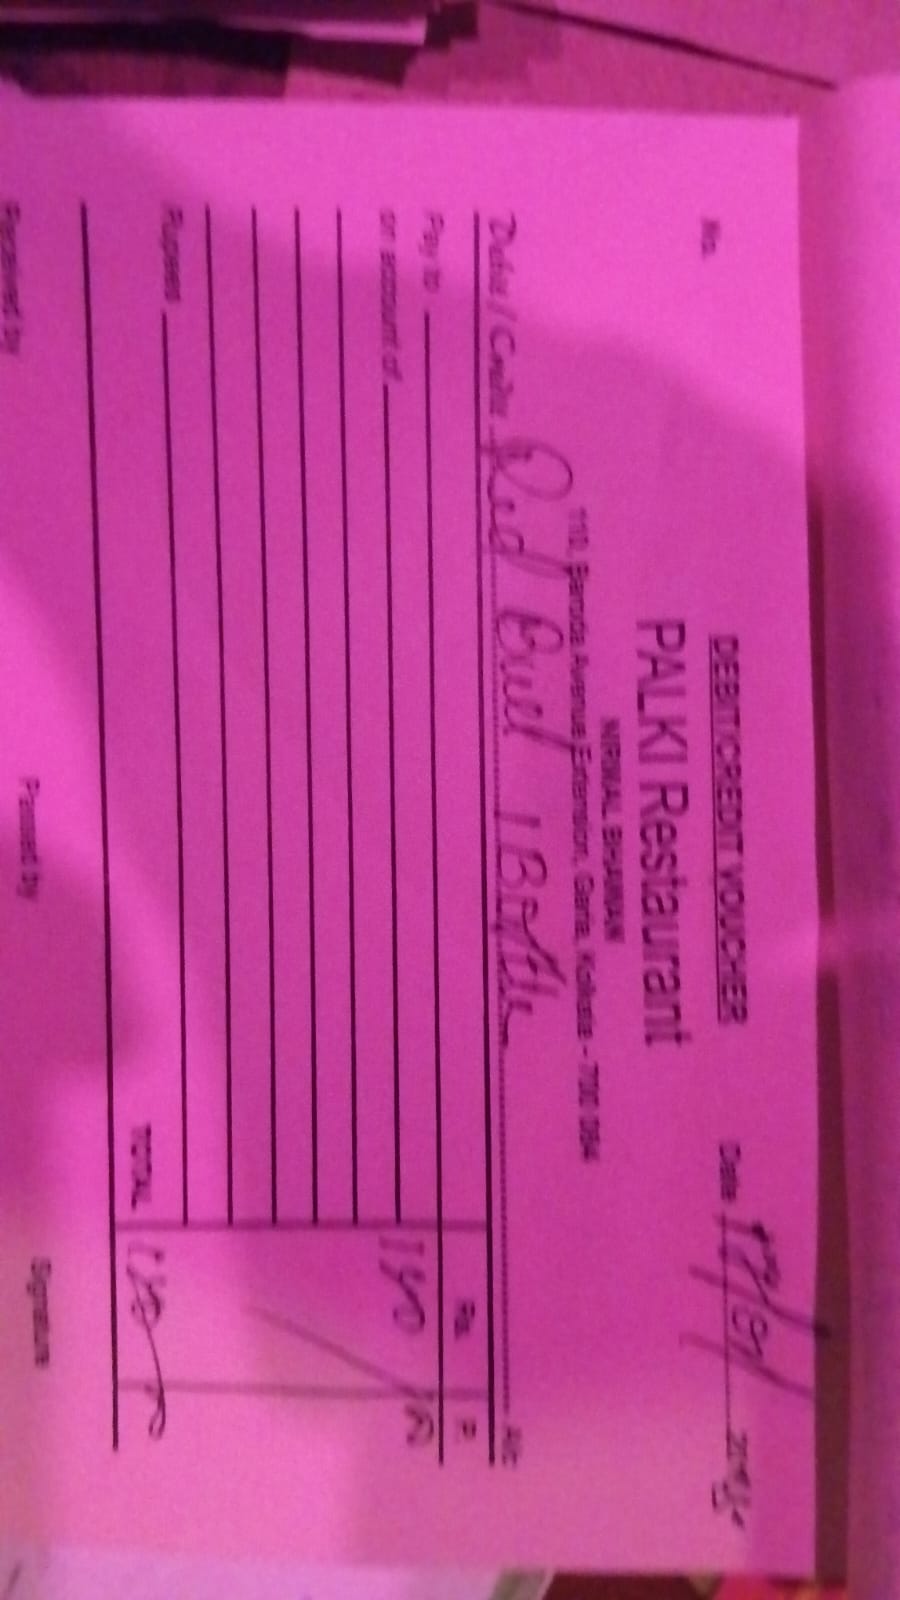 DEBIT/CREDIT VOUCHER
No. Date
PALKI Restaurant
NIRMAL BHAWAN
110, Baroda Avenue Extension, Garia, Kolkata - 700 084
Debit / Credit Red Bull 1 Bottle A/c
Rs. P.
Pay to
on account of
Rupees TOTAL
Received by Passed by Signature